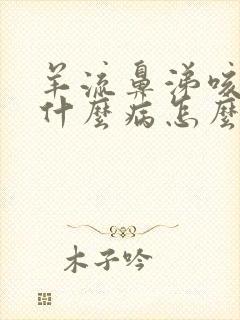 羊流鼻涕咳
什麼病怎麼
木子吟